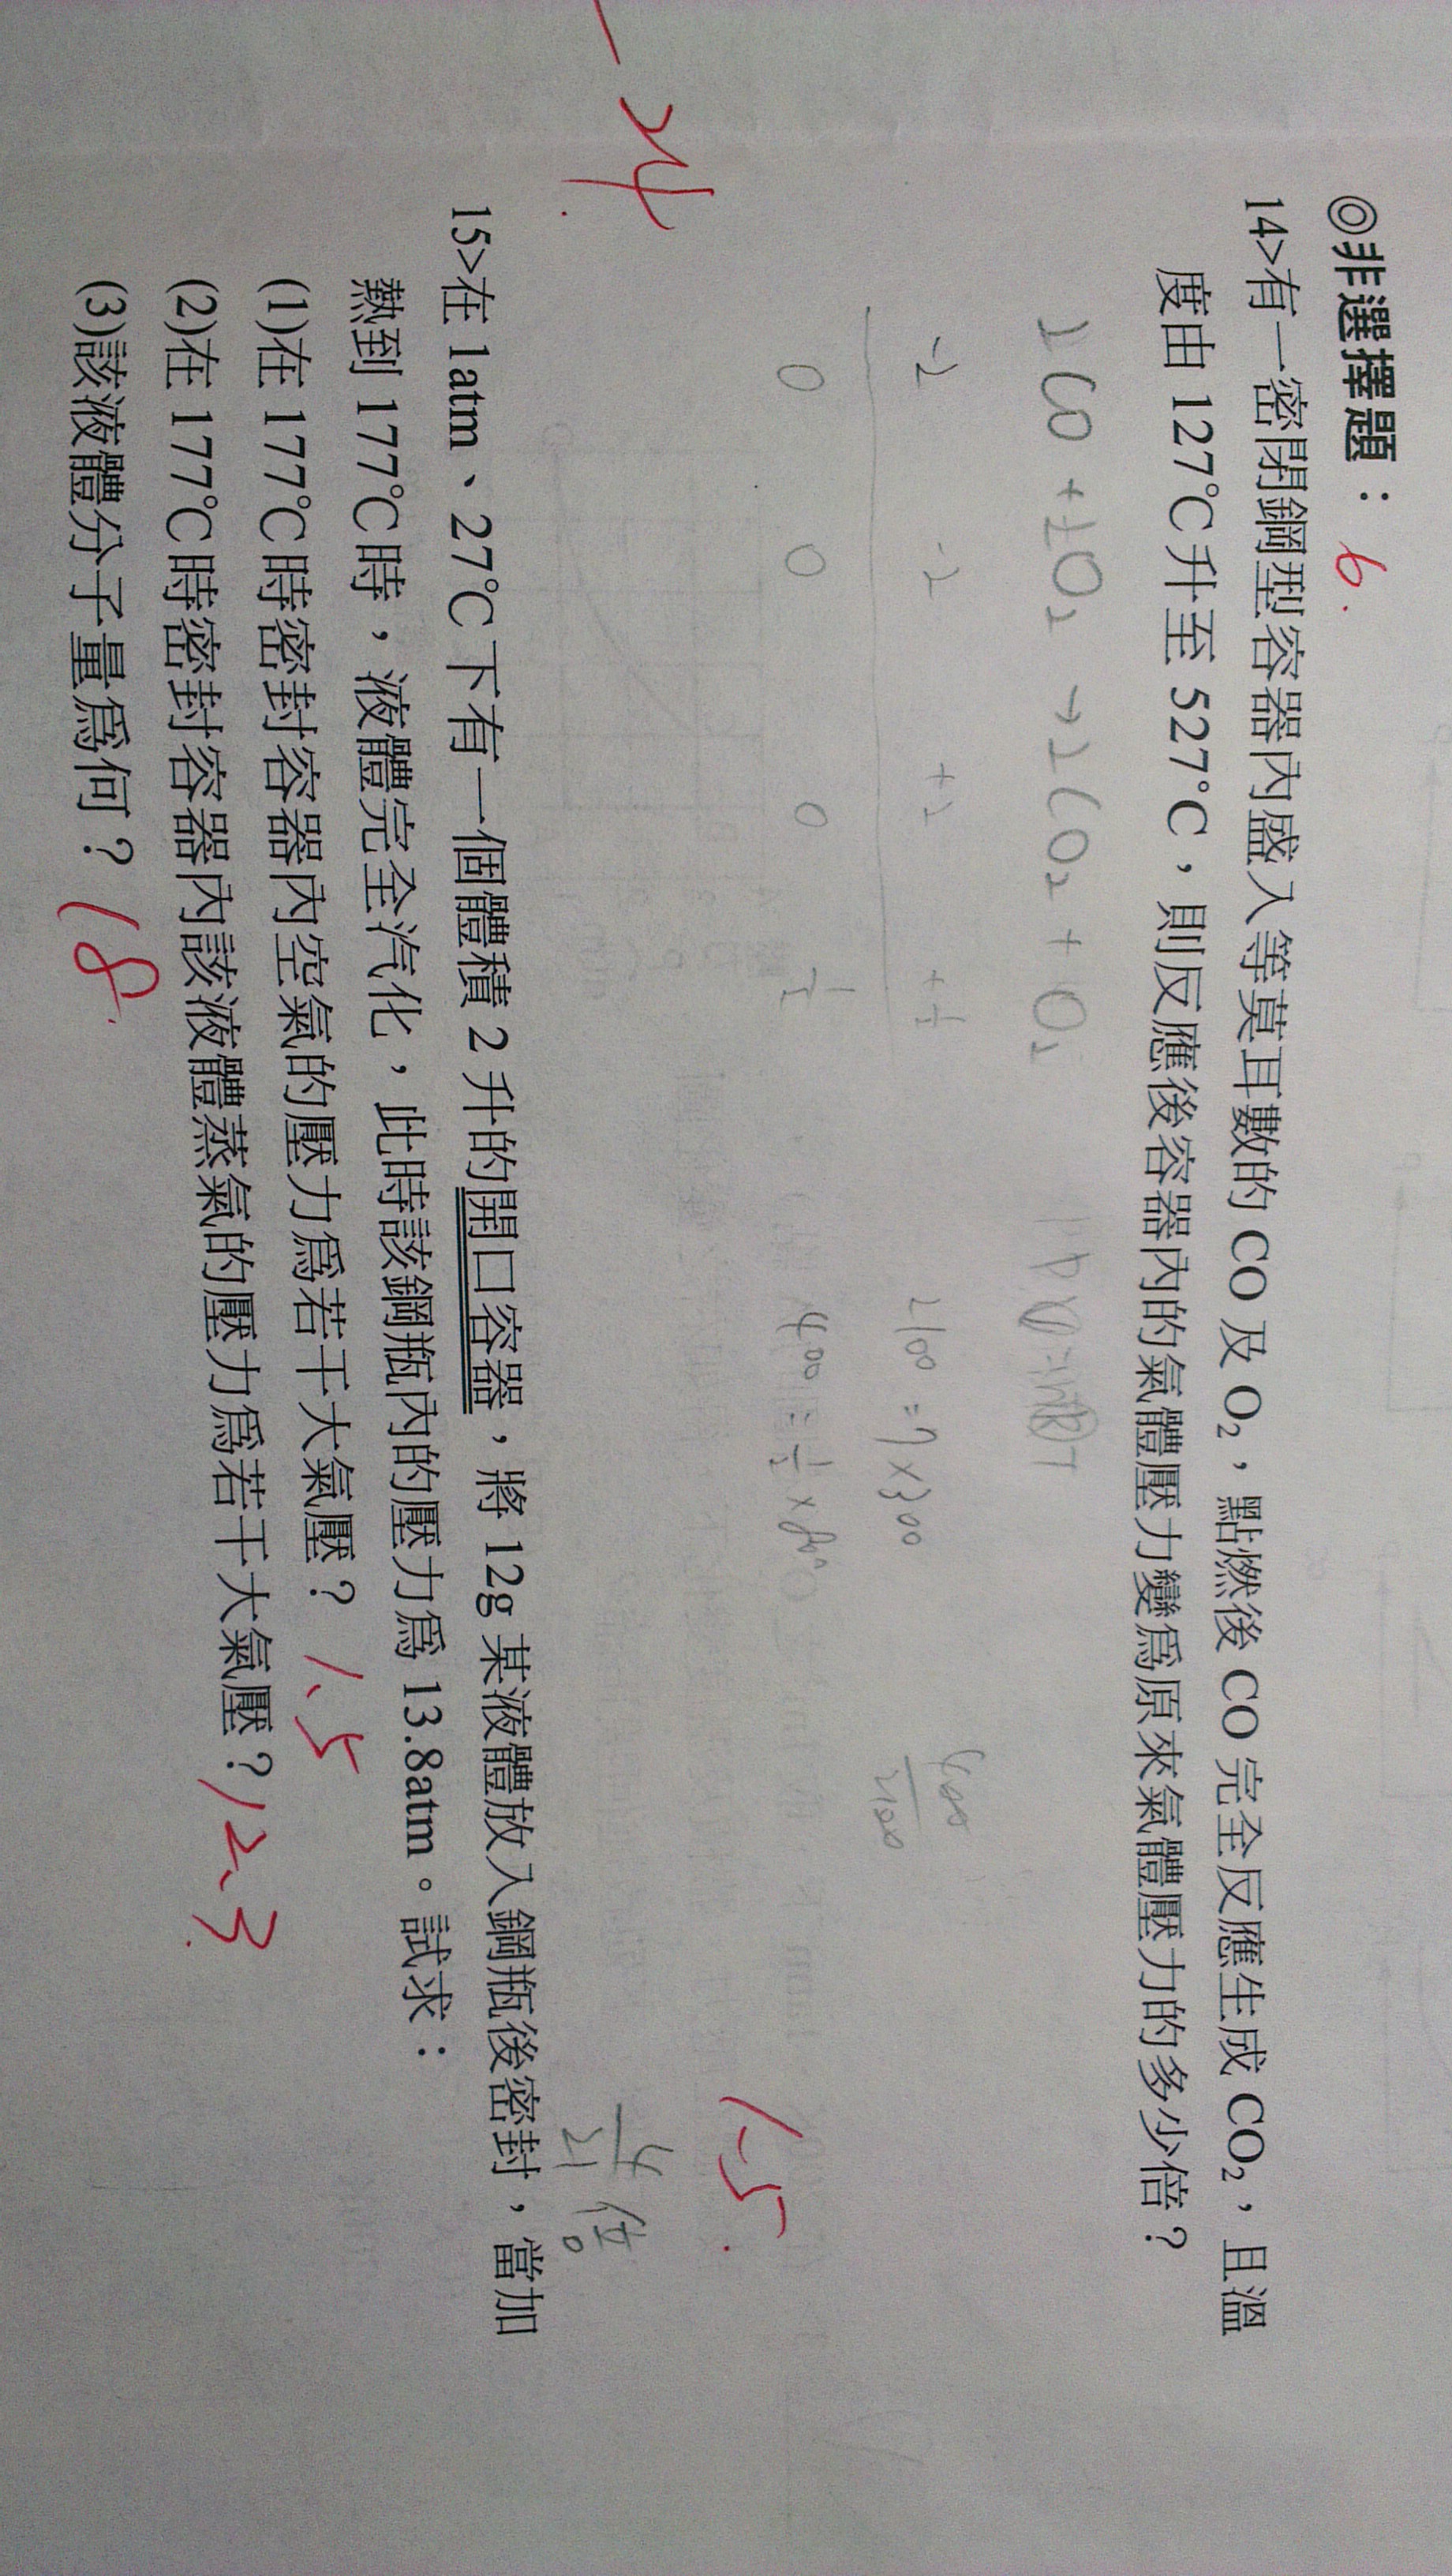 ◎非選擇題： 6.
14>有一密閉鋼型容器內盛入等莫耳數的 CO 及 O₂，點燃後 CO 完全反應生成 CO₂，且溫
度由 127℃升至 527℃，則反應後容器內的氣體壓力變爲原來氣體壓力的多少倍？
2CO → 2CO₂ + O₂
-2 -2 +2
0 0 0 1/2
2100 = 7×300
400
2100
1.5
4/21 倍。
-4
15>在 1atm、27℃下有一個體積 2 升的開口容器，將 12g 某液體放入鋼瓶後密封，當加
熱到 177℃時，液體完全汽化，此時該鋼瓶內的壓力爲 13.8atm。試求：
(1)在 177℃時密封容器內空氣的壓力爲若干大氣壓？ 1.5
(2)在 177℃時密封容器內該液體蒸氣的壓力爲若干大氣壓？ 12.3
(3)該液體分子量爲何？ 18